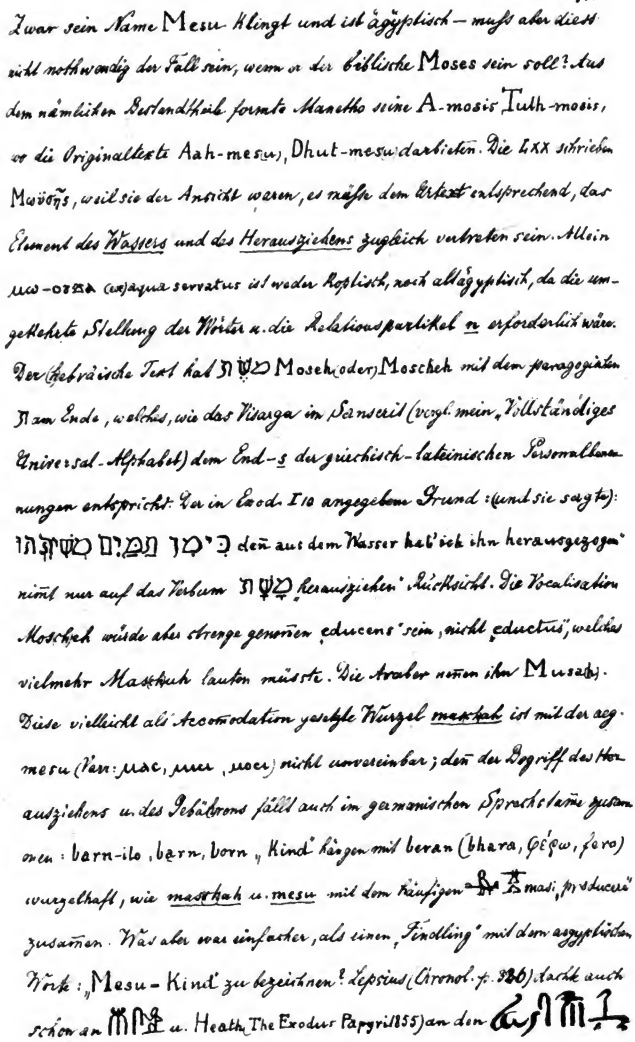 Zwar sein Name Mesu klingt und ist ägyptisch — muſs aber diess
nicht nothwendig der Fall sein, wenn er der biblische Moses sein soll? Aus
dem nämlichen Bestandtheile formte Manetho seine A-mosis, Tuth-mosis,
wo die Originaltexte Aah-mes(u), Dhut-mesu darbieten. Die LXX schrieben
Μωϋσῆς, weil sie der Ansicht waren, es müſse dem Urtext entsprechend, das
Element des Wassers und des Herausziehens zugleich vertreten sein. Allein
ⲙⲱ-ⲟⲩϫⲁ (ex) aqua servatus ist weder Koptisch, noch altägyptisch, da die um-
gekehrte Stellung der Wörter u. die Relationspartikel n erforderlich wäre.
Der (hebräische Text hat מֹשֶׁה Moseh (oder) Moscheh mit dem paragogischen
ה am Ende, welches, wie das Visarga im Sanscrit (vergl. mein „Vollständiges
Universal-Alphabet) dem End-s der griechisch-lateinischen Personalbenen-
nungen entspricht. Der in Exod. I 10 angegebene Grund: (und sie sagte):
כִּי מִן הַמַּיִם מְשִׁיתִהוּ deñ aus dem Wasser hab' ich ihn herausgezogen"
nim̄t nur auf das Verbum מָשָׁה „herausziehen" Rücksicht. Die Vocalisation
Moscheh würde aber strenge genom̄en „educens" sein, nicht „eductus", welches
vielmehr Maschuh lauten müsste. Die Araber neñen ihn Musa(h).
Diese vielleicht als Accom̄odation gesetzte Wurzel maschah ist mit der aeg.
mesu (Varr: ⲙⲁⲥ, ⲙⲉⲥ, ⲙⲟⲥⲓ) nicht unvereinbar; deñ der Begriff des Her-
ausziehens u. des Gebährens fällt auch im germanischen Sprachstam̄e zusam̄
men: barn-ilo, barn, born „Kind" hängen mit beran (bhara, φέρω, fero)
wurzelhaft, wie maschah u. mesu mit dem häufigen masi „producere"
zusam̄en. Was aber war einfacher, als einen „Findling" mit dem aegyptischen
Worte: „Mesu – Kind" zu bezeichnen? Lepsius (Chronol. p. 326) dachte auch
schon an u. Heath (The Exodus Papyri 1855) an den